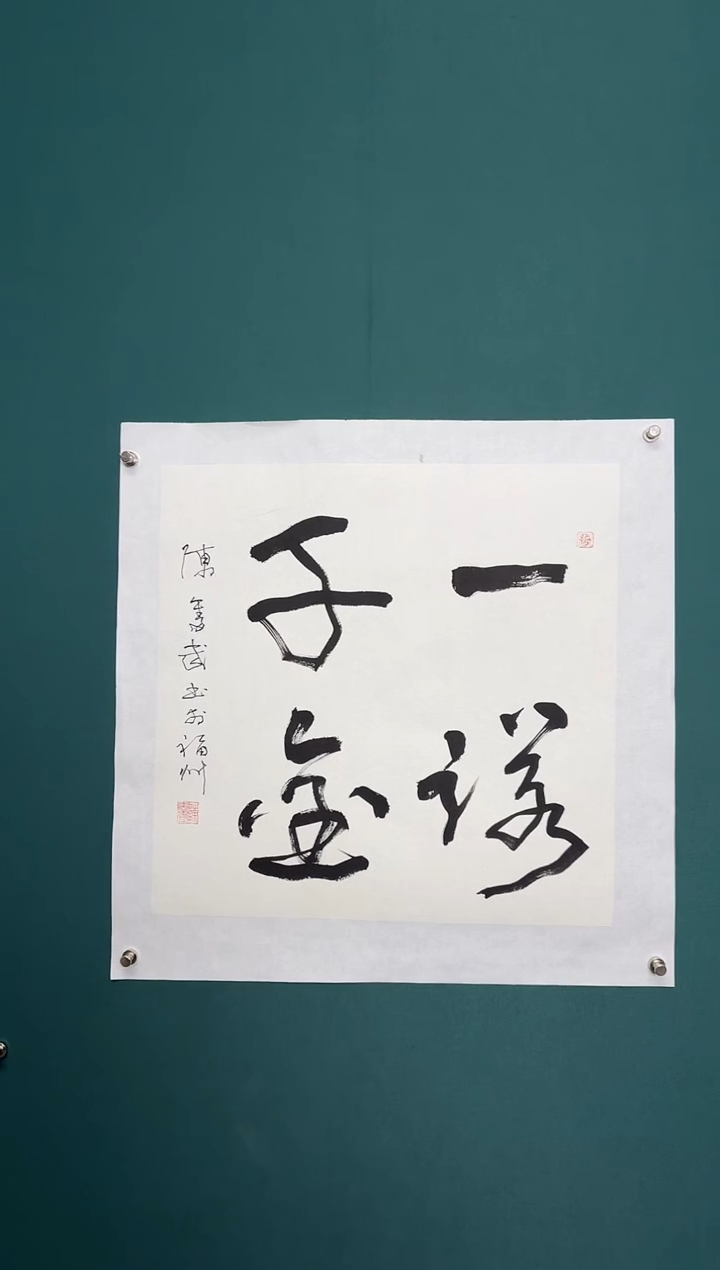 一諾
千金
陳奮武书於福州